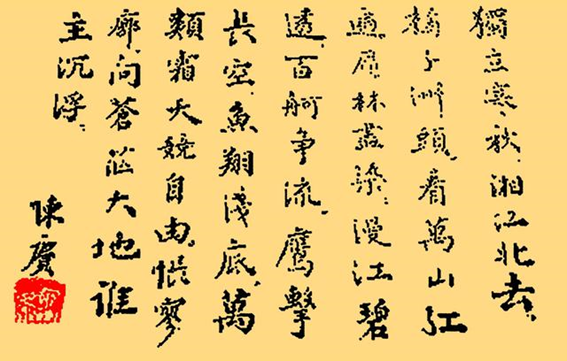 獨立寒秋，湘江北去，
橘子洲頭。看萬山紅
遍，層林盡染，漫江碧
透，百舸争流。鷹擊
長空，魚翔淺底，萬
類霜天競自由。悵寥
廓，問蒼茫大地誰
主沉浮。
陳賡